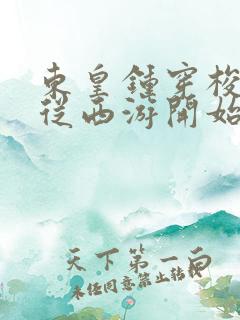 東皇鍾穿梭
從西游開始
天下第一白
未任同意禁止转载